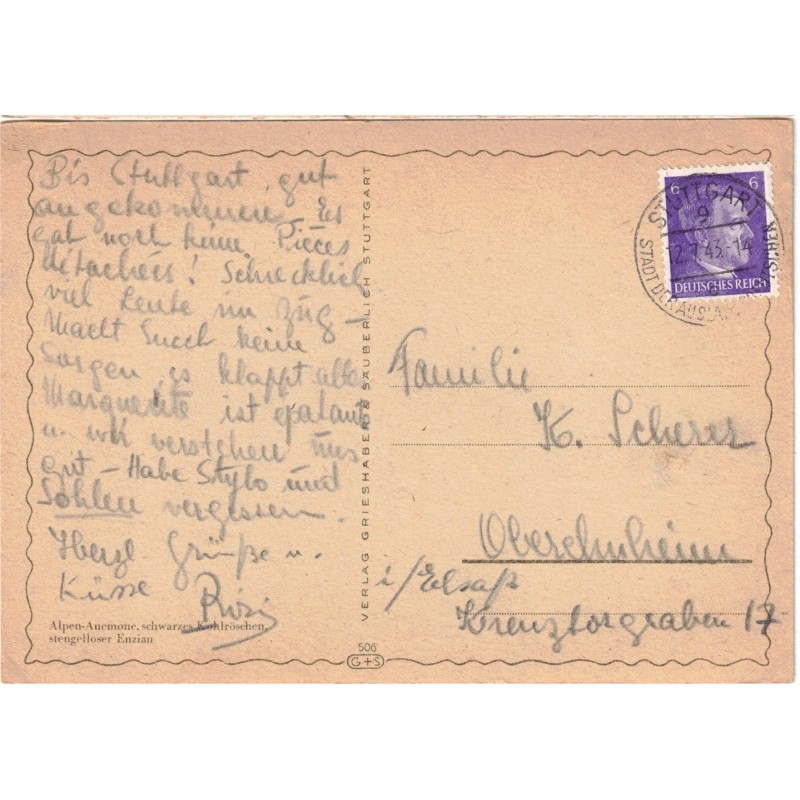 Bis Stuttgart gut
angekommen. Es
gab noch keine Pièces
détachées! Schrecklich
viel Leute im Zug –
Macht Euch keine
Sorgen, es klappt alles
Marguerite ist épatante
u. wir verstehen uns
gut – Habe Stylo und
Sohlen vergessen.
Herzl. Grüße u.
Küsse
Rösi
Alpen-Anemone, schwarzes Kohlröschen,
stengelloser Enzian
VERLAG GRIESHABER & SÄUBERLICH STUTTGART
506
G+S
6 6
DEUTSCHES REICH
STUTTGART
9
12.7.43.-14
STADT DER AUSLANDSDEUTSCHEN
Familie
K. Scherer
Oberehnheim
i/Elsaß
Kreuztorgraben 17